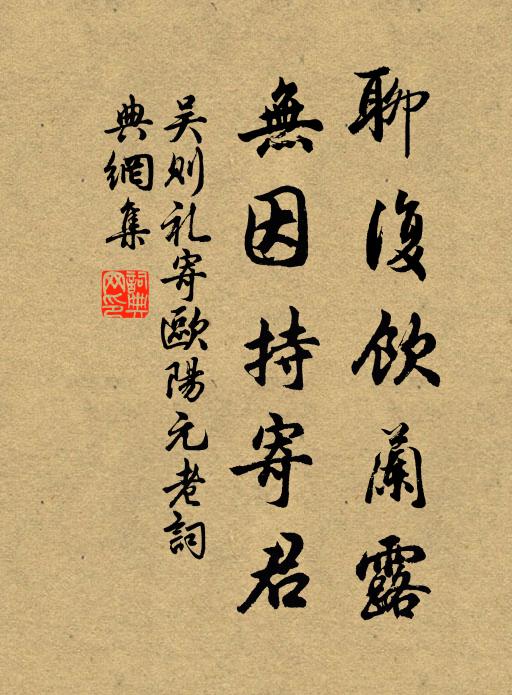 聊復飲蘭露
無因持寄君
吴則礼寄歐陽元老詞
典網集
詞典
网印